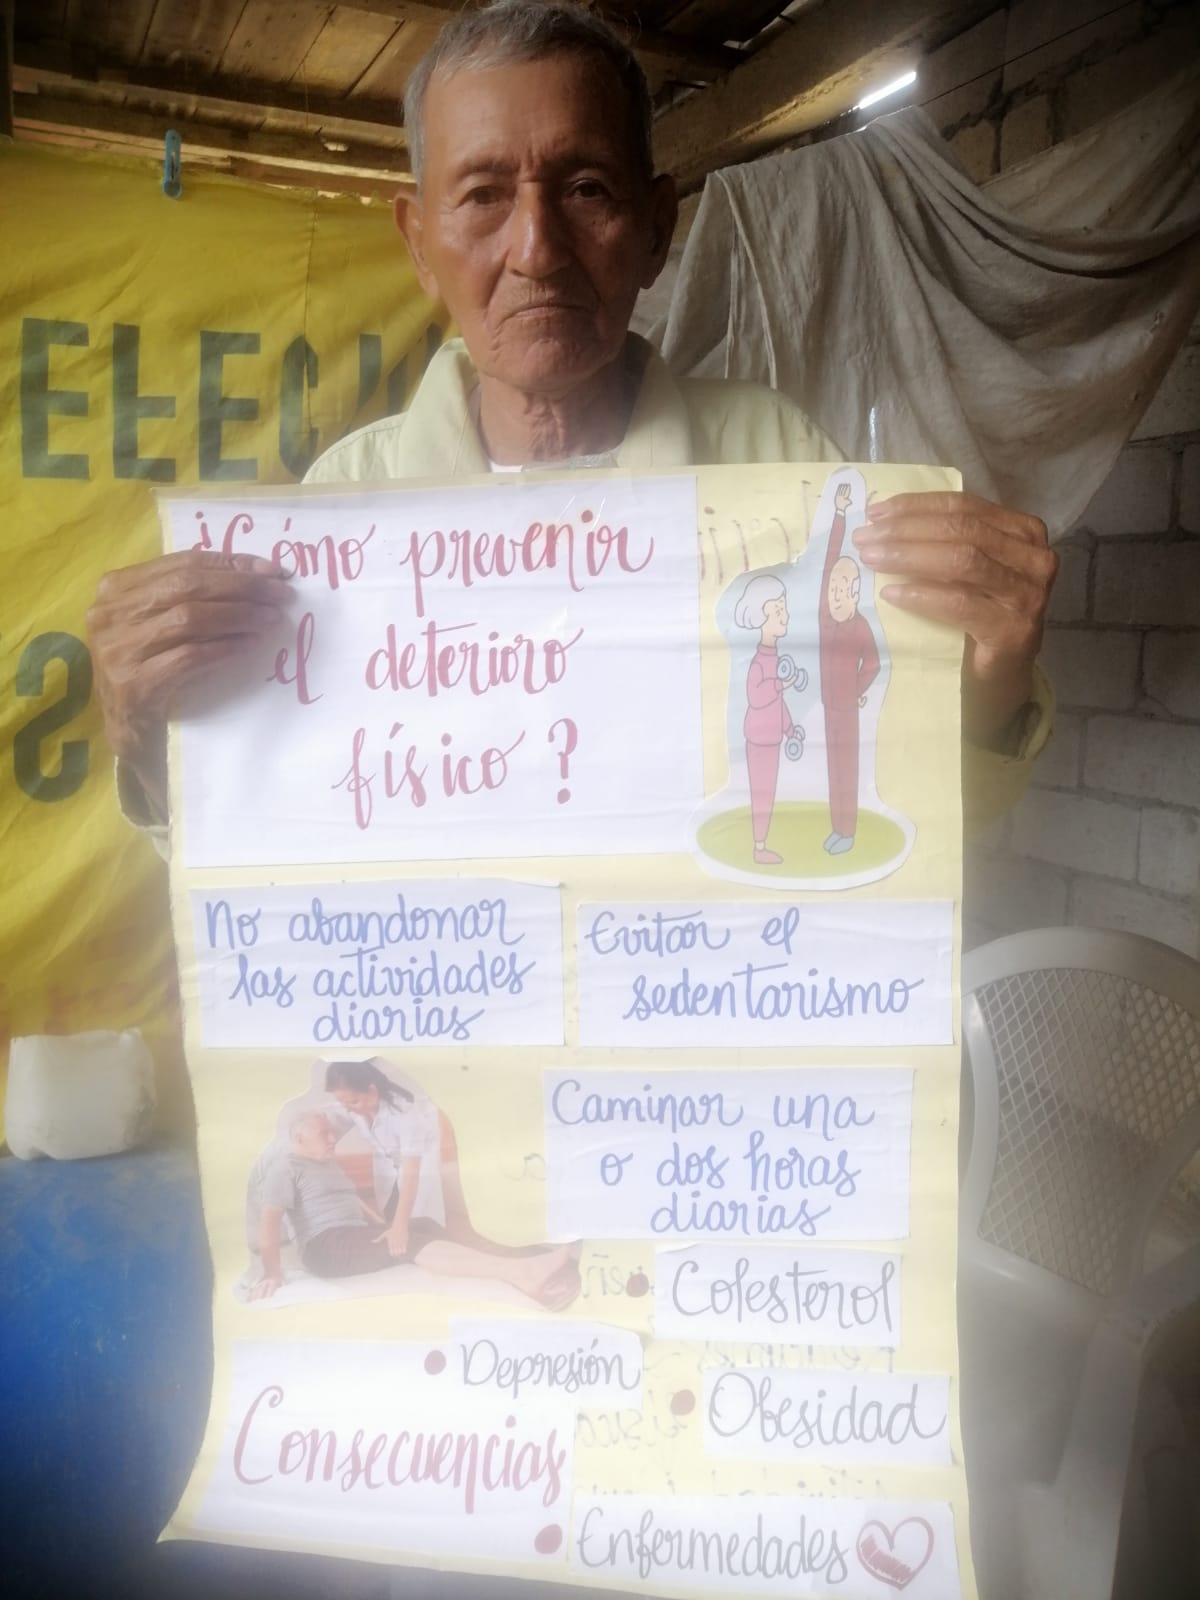 ¿Cómo prevenir
el deterioro
físico?
No abandonar
las actividades
diarias
Evitar el
sedentarismo
Caminar una
o dos horas
diarias
• Colesterol
• Depresión
• Obesidad
Consecuencias
• Enfermedades